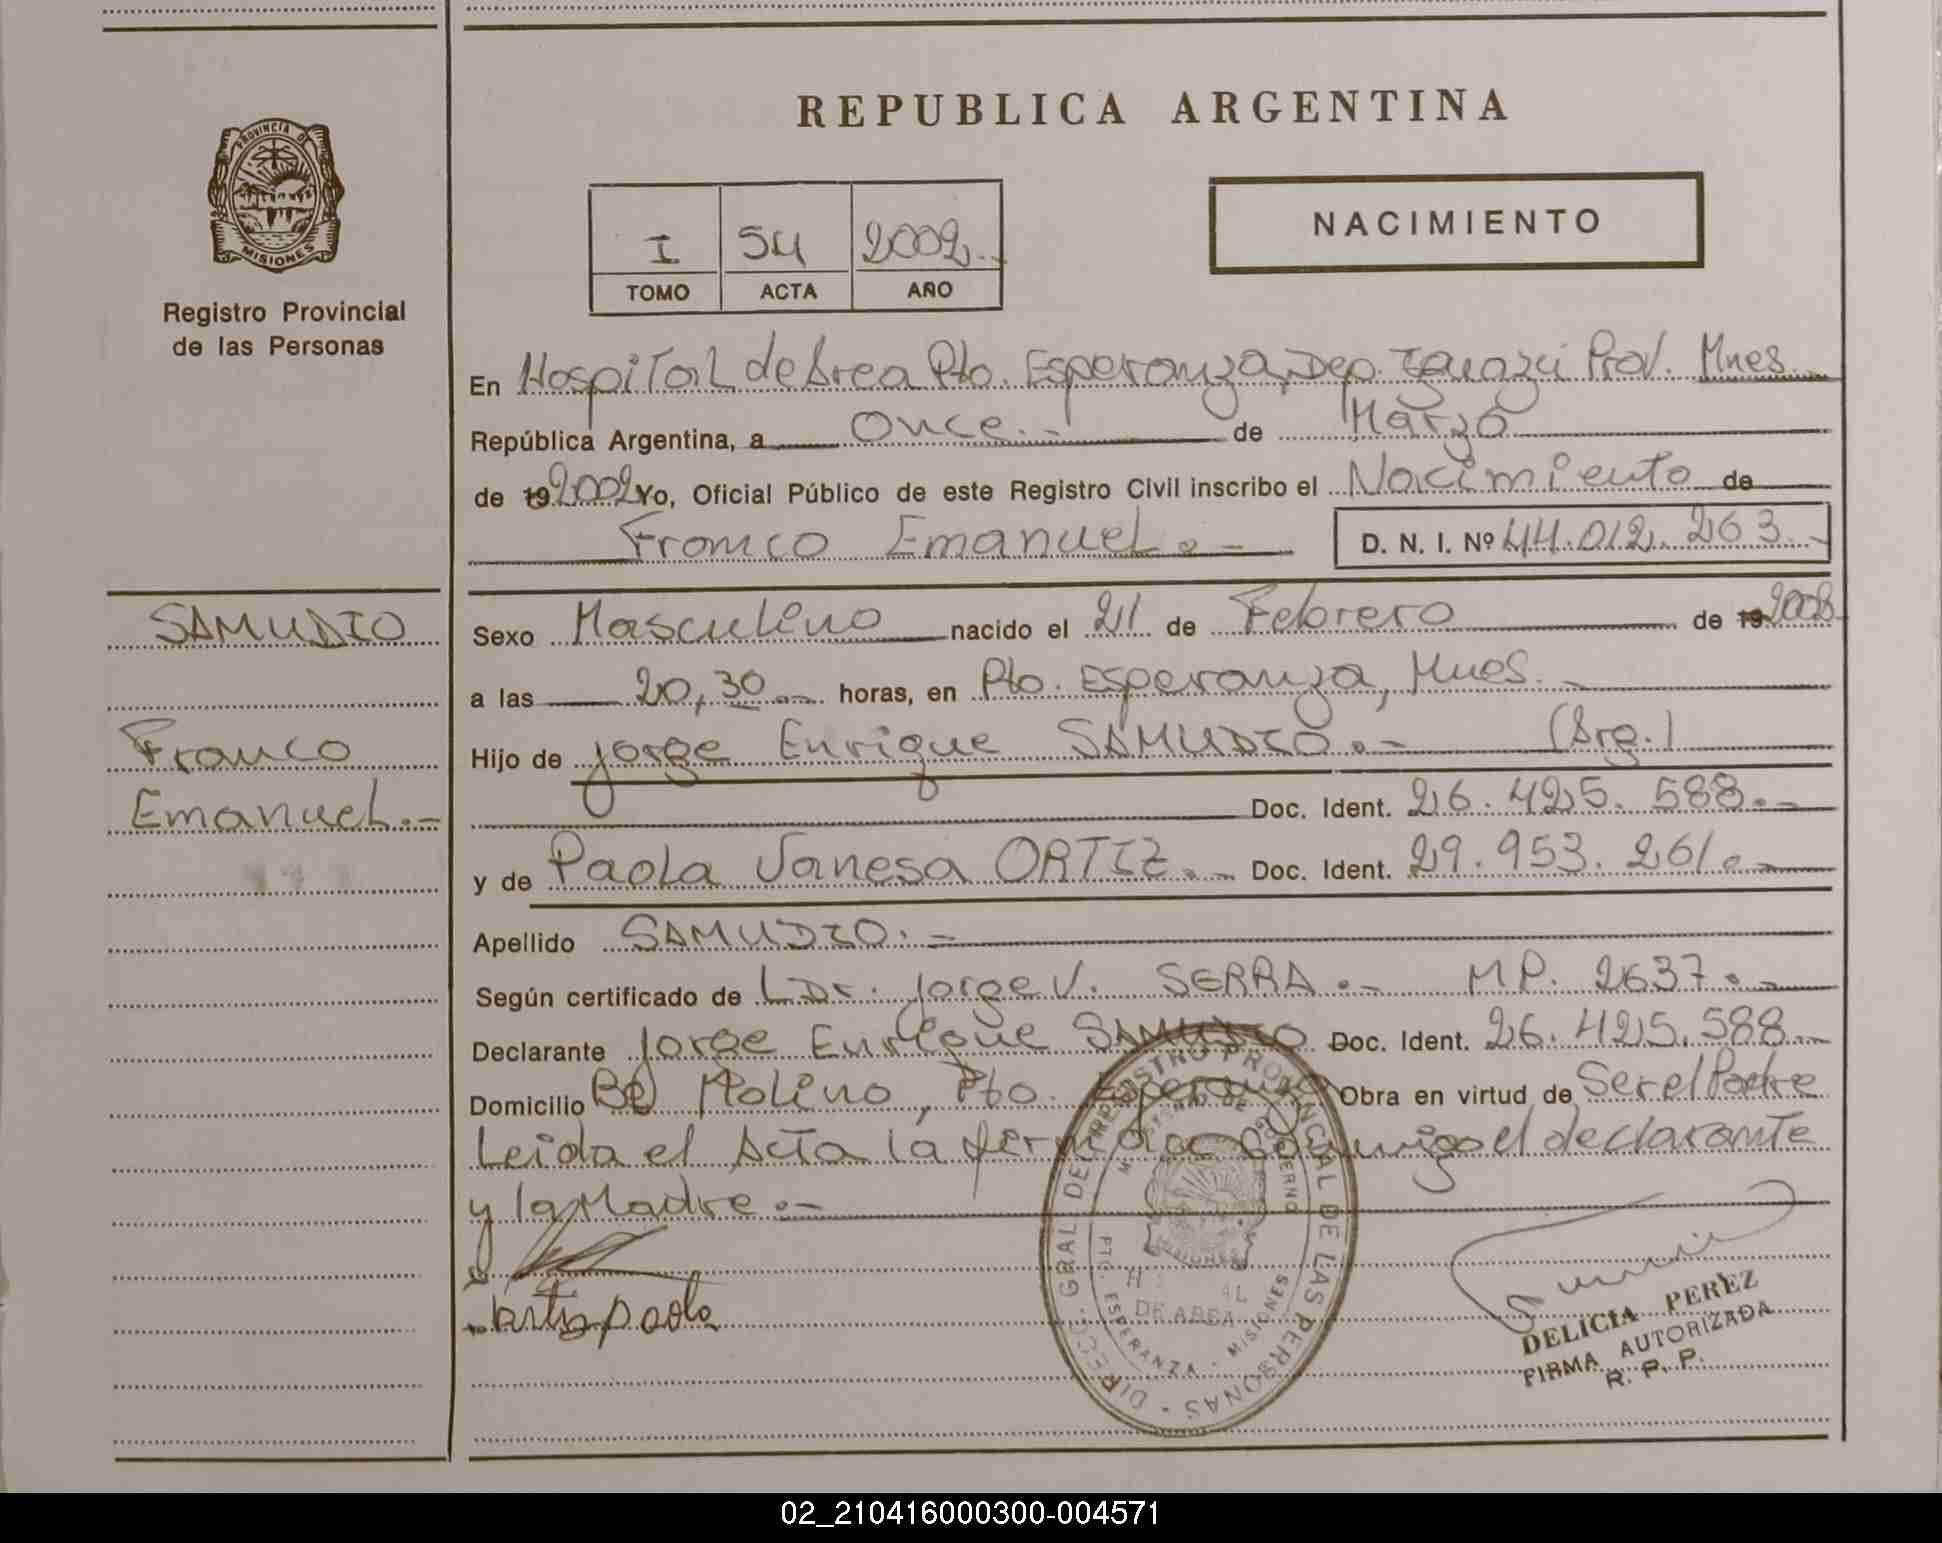 PROVINCIA DE
MISIONES
Registro Provincial
de las Personas
SAMUDIO
Franco
Emanuel.-
REPUBLICA ARGENTINA
I 54 2002.-
TOMO ACTA AÑO
NACIMIENTO
En Hospital de Area Pto. Esperanza, Dep. Iguazú Prov. Mnes.
República Argentina, a Once.- de Marzo
de 19 2002 Yo, Oficial Público de este Registro Civil inscribo el Nacimiento de
Franco Emanuel.- D. N. I. Nº 44.012.263.-
Sexo Masculino nacido el 21 de Febrero de 19 2002
a las 20,30.- horas, en Pto. Esperanza, Mnes.-
Hijo de Jorge Enrique SAMUDIO.- (Arg.)
Doc. Ident. 26.425.588.-
y de Paola Vanesa ORTIZ.- Doc. Ident. 29.953.261.-
Apellido SAMUDIO.-
Según certificado de Dr. Jorge V. SERRA.- MP. 2637.-
Declarante Jorge Enrique SAMUDIO Doc. Ident. 26.425.588.-
Domicilio Molino, Pto. Esperanza Obra en virtud de Ser el Padre
Leida el Acta la firman conmigo el declarante
y la Madre.-
ortiz paola
DIRECC. GRAL DEL REGISTRO PROVINCIAL DE LAS PERSONAS
MINISTERIO DE GOBIERNO
MISIONES
DE AREA
PTO. ESPERANZA - MISIONES
DELICIA PEREZ
FIRMA AUTORIZADA
R. P. P.
02_210416000300-004571